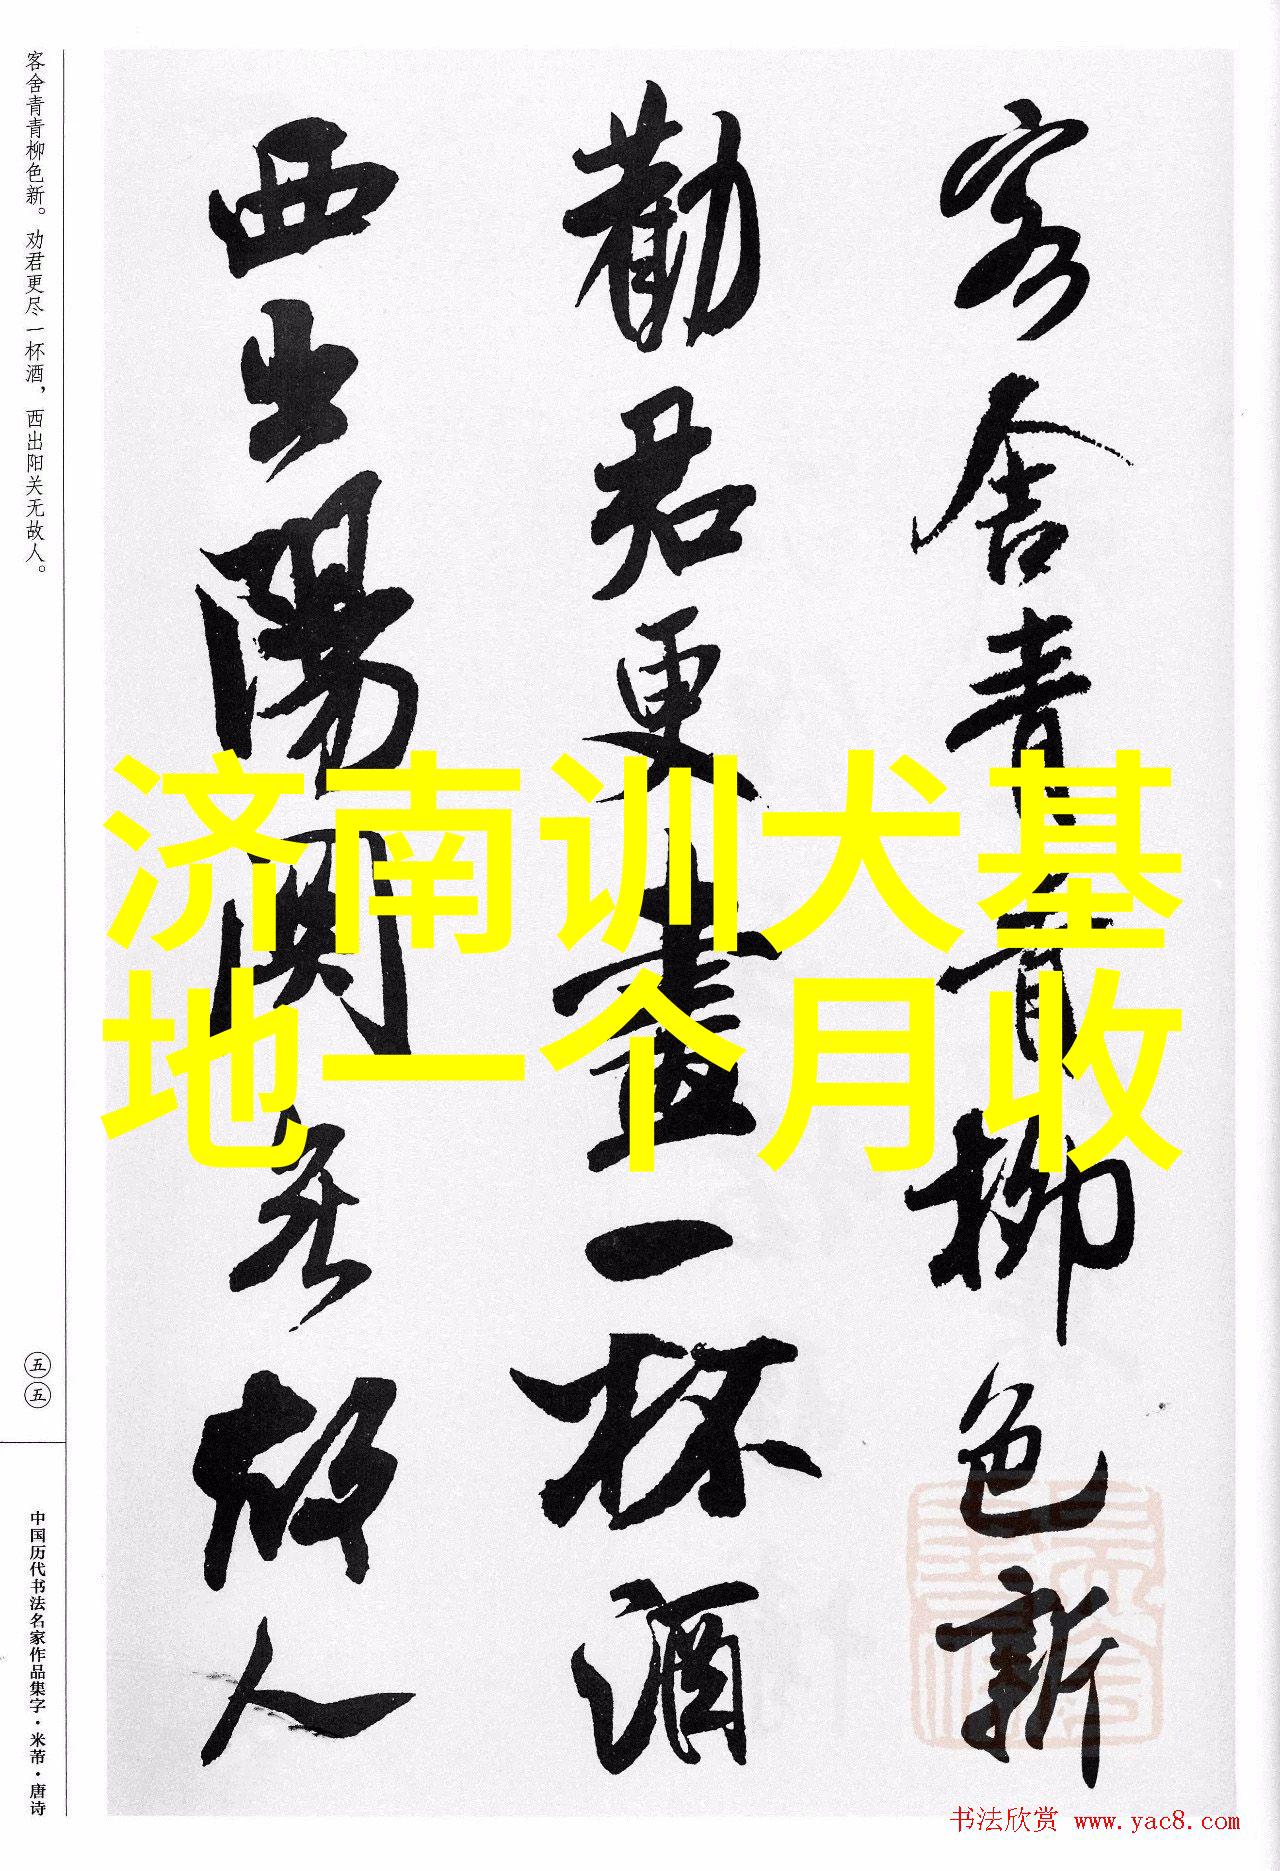 客舍青青柳色新
勸君更盡一杯酒
西出陽關無故人
济南训犬基
地一个月收
客舍青青柳色新。劝君更尽一杯酒，西出阳关无故人。
五五
中国历代书法名家作品集字·米芾·唐诗
书法欣赏 www.yac8.com